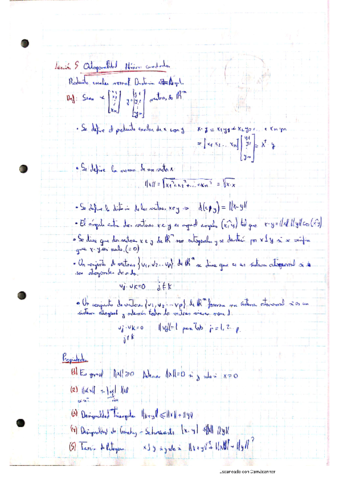 Lección 5 Ortogonalidad Mínimos cuadrados
Producto escalar normal Distancia
Def: Sean x y vectores de ℝᵐ
• Se define el producto escalar de x con y x·y = x₁y₁ + x₂y₂ + ... + xₘyₘ
= [x₁ x₂ ... xₘ] = xᵀ y
• Se define la norma de un vector x
||x|| = √x₁²+x₂²+...+xₘ² = √x·x
• Se define la distancia de los vectores x e y → d(x,y) = ||x-y||
• El ángulo entre dos vectores x e y es aquel ángulo (x,y) tal que x·y = ||x|| ||y|| cos(x,y)
• Se dice que dos vectores x e y de ℝᵐ son ortogonales y se denota por x⊥y si
que x·y es nulo (=0)
• Un conjunto de vectores {v₁, v₂ ... vp} de ℝᵐ se dice que es un sistema ortogonal si
son ortogonales dos a dos.
vj·vk=0 j≠k
• Un conjunto de vectores {v₁, v₂ ... vp} de ℝᵐ forman un sistema ortonormal si es un
sistema ortogonal y además todos los vectores tienen norma 1.
vj·vk=0 ||vj||=1 para todo j=1,2..p
j≠k
Propiedades
(1) En general ||x||≥0 Además ||x||=0 si y solo si x=0
(2) ||αx|| = |α| ||x||
(3) Desigualdad Triangular ||x+y|| ≤ ||x||+||y||
(4) Desigualdad de Cauchy-Schwarz |x·y| ≤ ||x|| ||y||
(5) Teorema de Pitágoras x⊥y ||x+y||² = ||x||² + ||y||²
Escaneado con CamScanner